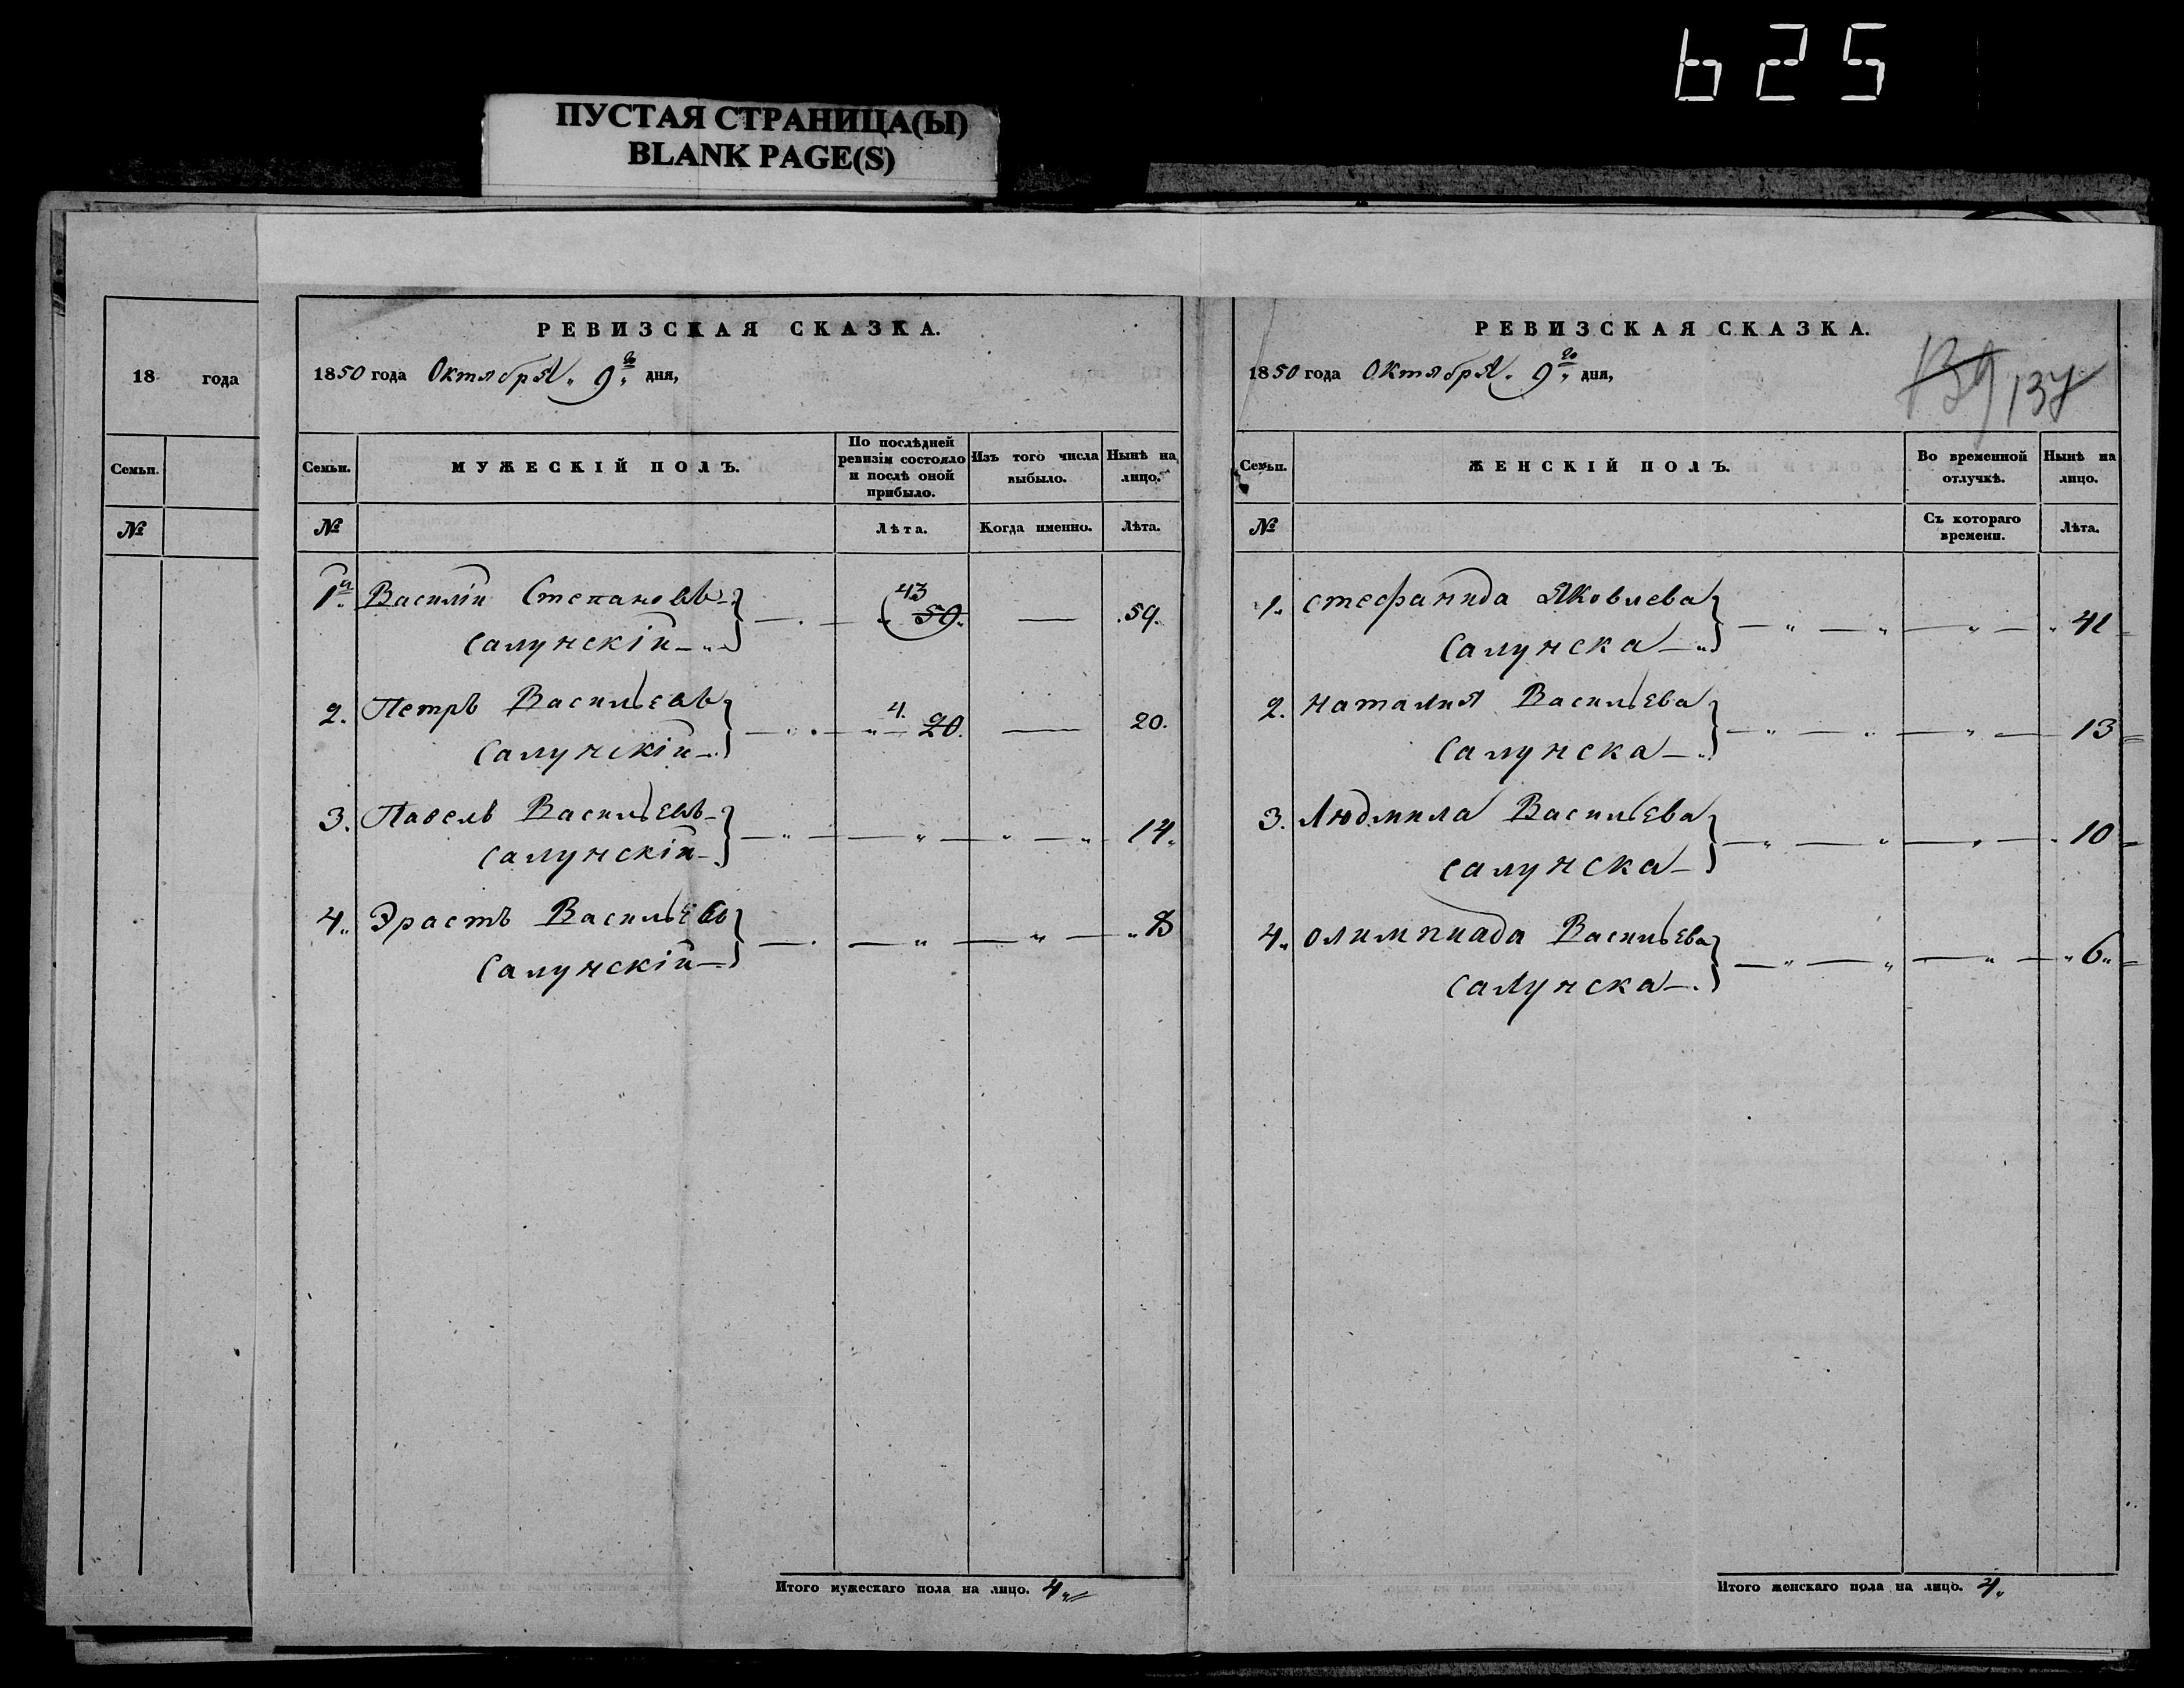 625
ПУСТАЯ СТРАНИЦА(Ы)
BLANK PAGE(S)
18 года
Семьи.
№
РЕВИЗСКАЯ СКАЗКА.
1850 года Октября 9го дня,
Семьи.
МУЖЕСКІЙ ПОЛЪ.
По послѣдней ревизіи состояло и послѣ оной прибыло.
Изъ того числа выбыло.
Нынѣ на лицо.
№
Лѣта.
Когда именно.
Лѣта.
1й Василій Степановъ 43 59. 59.
Салунскій
2. Петръ Васильевъ 4. 20. 20.
Салунскій
3. Павелъ Васильевъ 14.
Салунскій
4. Эрастъ Васильевъ 8
Салунскій
Итого мужескаго пола на лицо. 4
РЕВИЗСКАЯ СКАЗКА.
1850 года Октября 9го дня,
139 137
Семьи.
ЖЕНСКІЙ ПОЛЪ.
Во временной отлучкѣ.
Нынѣ на лицо.
№
Съ котораго времени.
Лѣта.
1. Стефанида Яковлева 41
Салунска
2. Наталия Васильева 13
Салунска
3. Людмила Васильева 10
Салунска
4. Олимпиада Васильева 6
Салунска
Итого женскаго пола на лицо. 4.